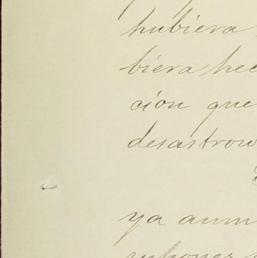 hubiera
biera hec
cion que
desastrow
ya aum